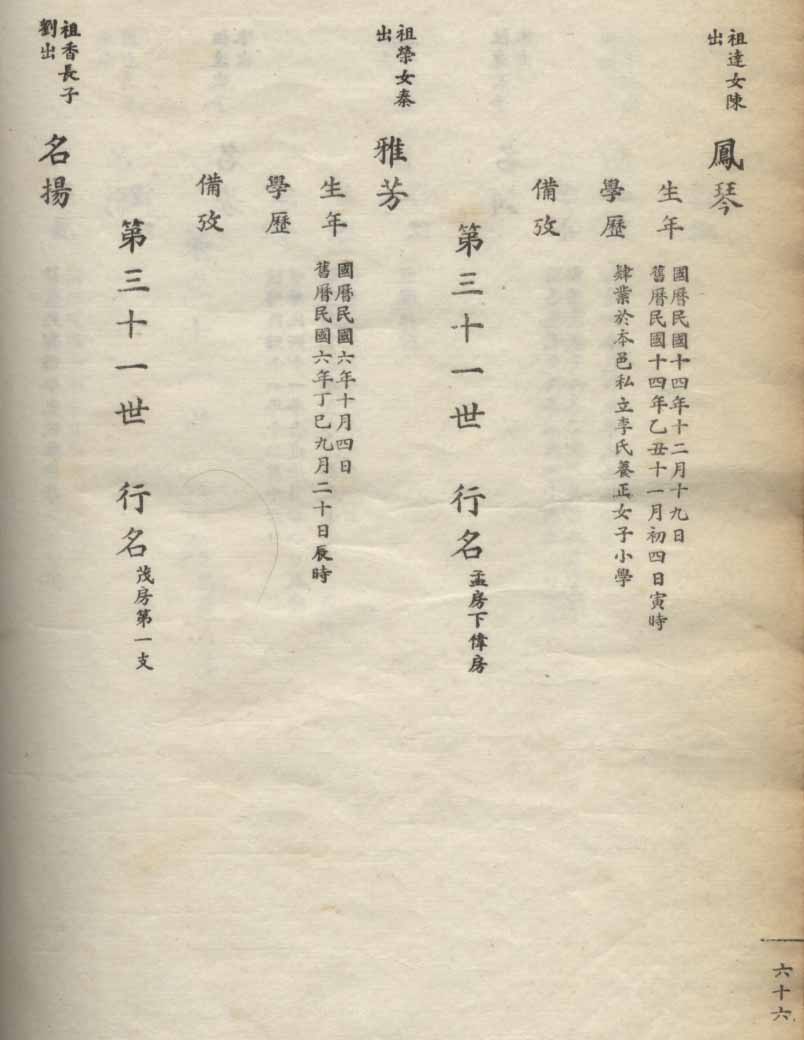 祖達女陳
出
鳳琴
生年
國曆民國十四年十二月十九日
舊曆民國十四年乙丑十一月初四日寅時
學歷
肄業於本邑私立李氏養正女子小學
備攷
第三十一世 行名 孟房下偉房
祖榮女秦
出
雅芳
生年
國曆民國六年十月四日
舊曆民國六年丁巳九月二十日辰時
學歷
備攷
第三十一世 行名 茂房第一支
祖香長子
劉出
名揚
六十六